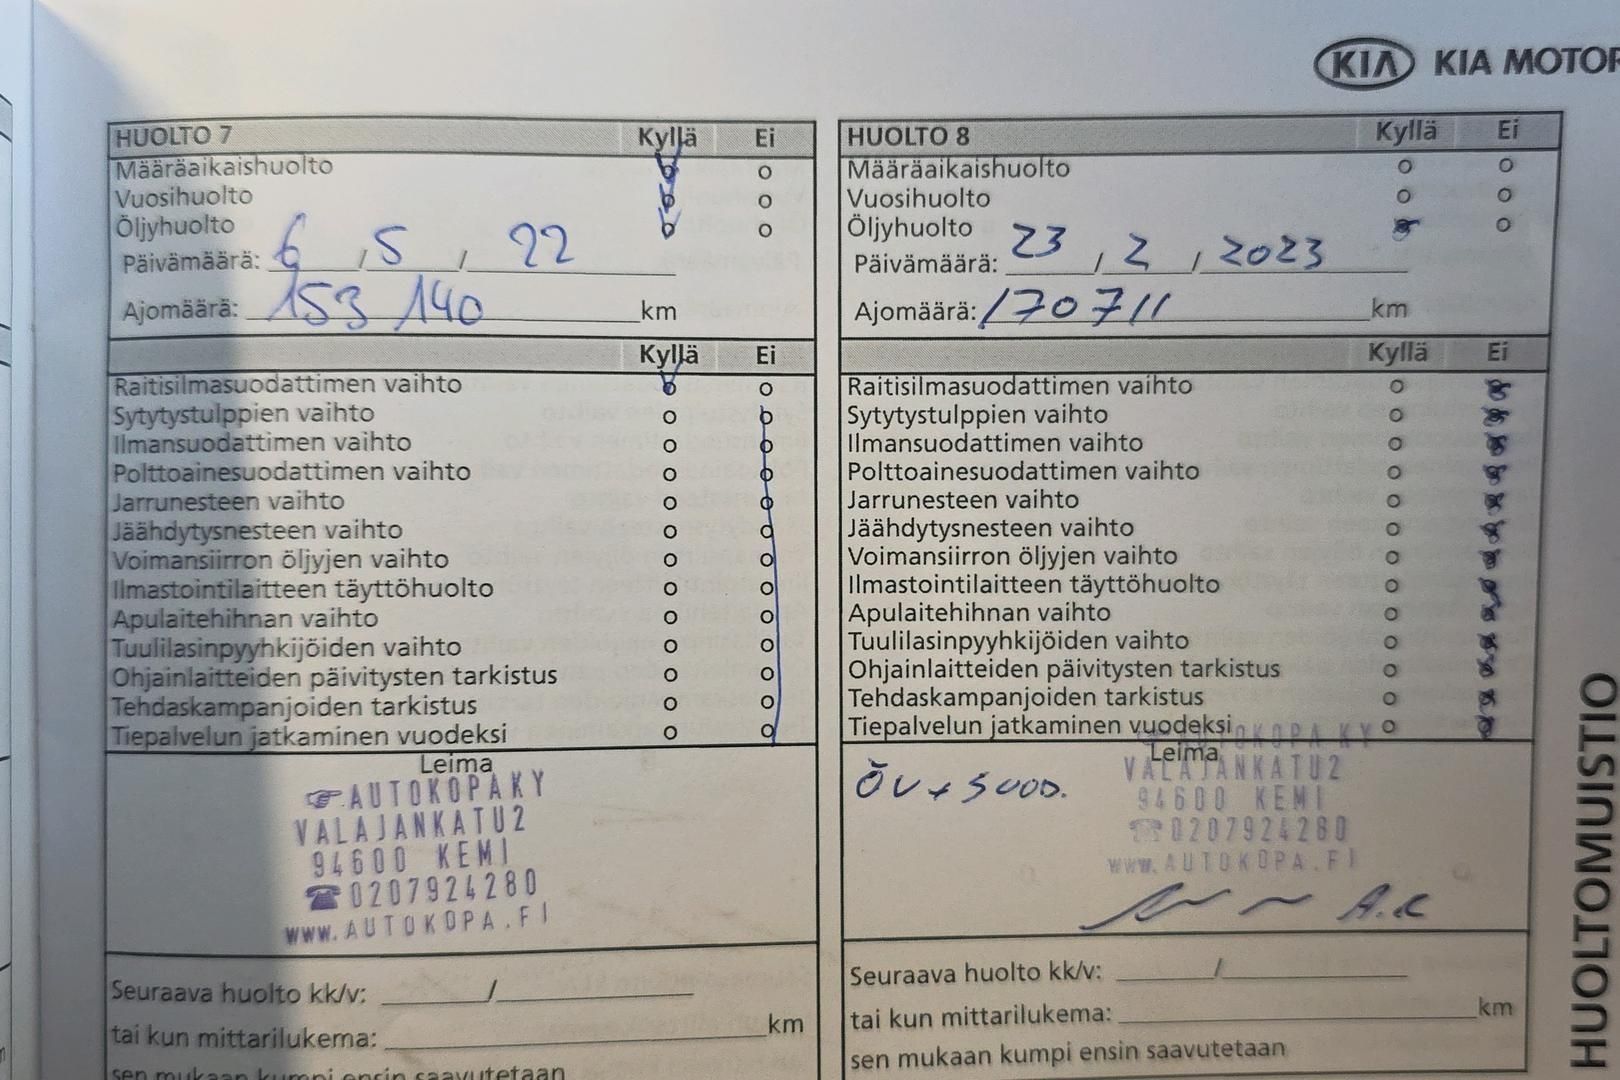 KIA KIA MOTOR
HUOLTO 7 Kyllä Ei
Määräaikaishuolto
Vuosihuolto
Öljyhuolto
Päivämäärä: 6 / 5 / 22
Ajomäärä: 153 140 km
Kyllä Ei
Raitisilmasuodattimen vaihto
Sytytystulppien vaihto
Ilmansuodattimen vaihto
Polttoainesuodattimen vaihto
Jarrunesteen vaihto
Jäähdytysnesteen vaihto
Voimansiirron öljyjen vaihto
Ilmastointilaitteen täyttöhuolto
Apulaitehihnan vaihto
Tuulilasinpyyhkijöiden vaihto
Ohjainlaitteiden päivitysten tarkistus
Tehdaskampanjoiden tarkistus
Tiepalvelun jatkaminen vuodeksi
Leima
☞ AUTOKOPA KY
VALAJANKATU 2
94600 KEMI
☎ 0207924280
www.AUTOKOPA.FI
Seuraava huolto kk/v: /
tai kun mittarilukema: km
sen mukaan kumpi ensin saavutetaan
HUOLTO 8 Kyllä Ei
Määräaikaishuolto
Vuosihuolto
Öljyhuolto
Päivämäärä: 23 / 2 / 2023
Ajomäärä: 170711 km
Kyllä Ei
Raitisilmasuodattimen vaihto
Sytytystulppien vaihto
Ilmansuodattimen vaihto
Polttoainesuodattimen vaihto
Jarrunesteen vaihto
Jäähdytysnesteen vaihto
Voimansiirron öljyjen vaihto
Ilmastointilaitteen täyttöhuolto
Apulaitehihnan vaihto
Tuulilasinpyyhkijöiden vaihto
Ohjainlaitteiden päivitysten tarkistus
Tehdaskampanjoiden tarkistus
Tiepalvelun jatkaminen vuodeksi
Leima
ÖV + SUOD.
AUTOKOPA KY
VALAJANKATU 2
94600 KEMI
☎ 0207924280
www.AUTOKOPA.FI
A.K
Seuraava huolto kk/v: /
tai kun mittarilukema: km
sen mukaan kumpi ensin saavutetaan
HUOLTOMUISTIO